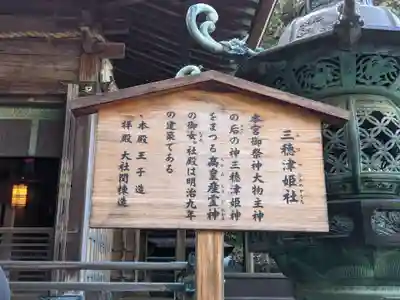 三穂津姫社
本宮御祭神大物主神
の后の神三穂津姫神
をまつる高皇産霊神
の御女 社殿は明治九年
の建築である
・本殿 王子造
・拝殿 大社関棟造